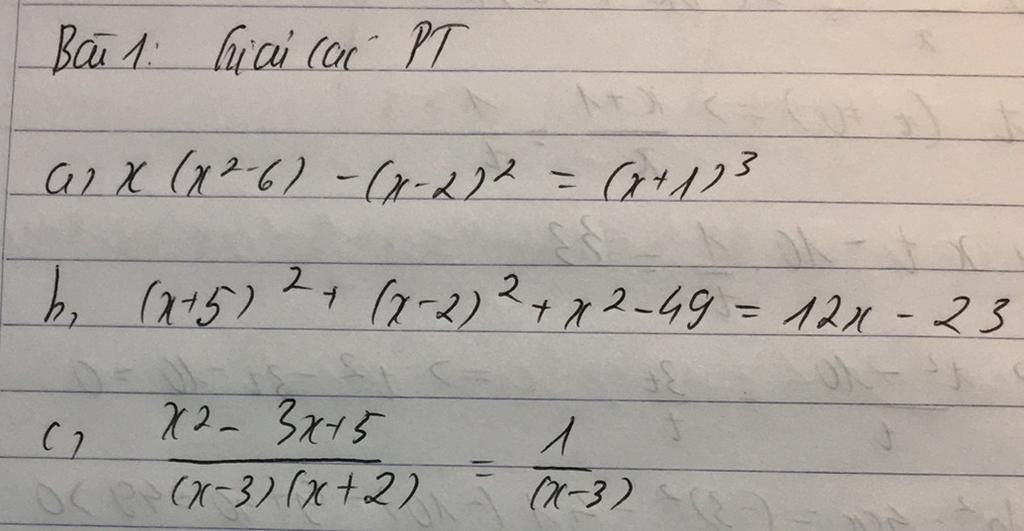 Bài 1: Giải các PT
a, x (x²-6) - (x-2)² = (x+1)³
b, (x+5)² + (x-2)² + x² - 49 = 12x - 23
c, \frac{x² - 3x + 5}{(x-3)(x+2)} = \frac{1}{(x-3)}